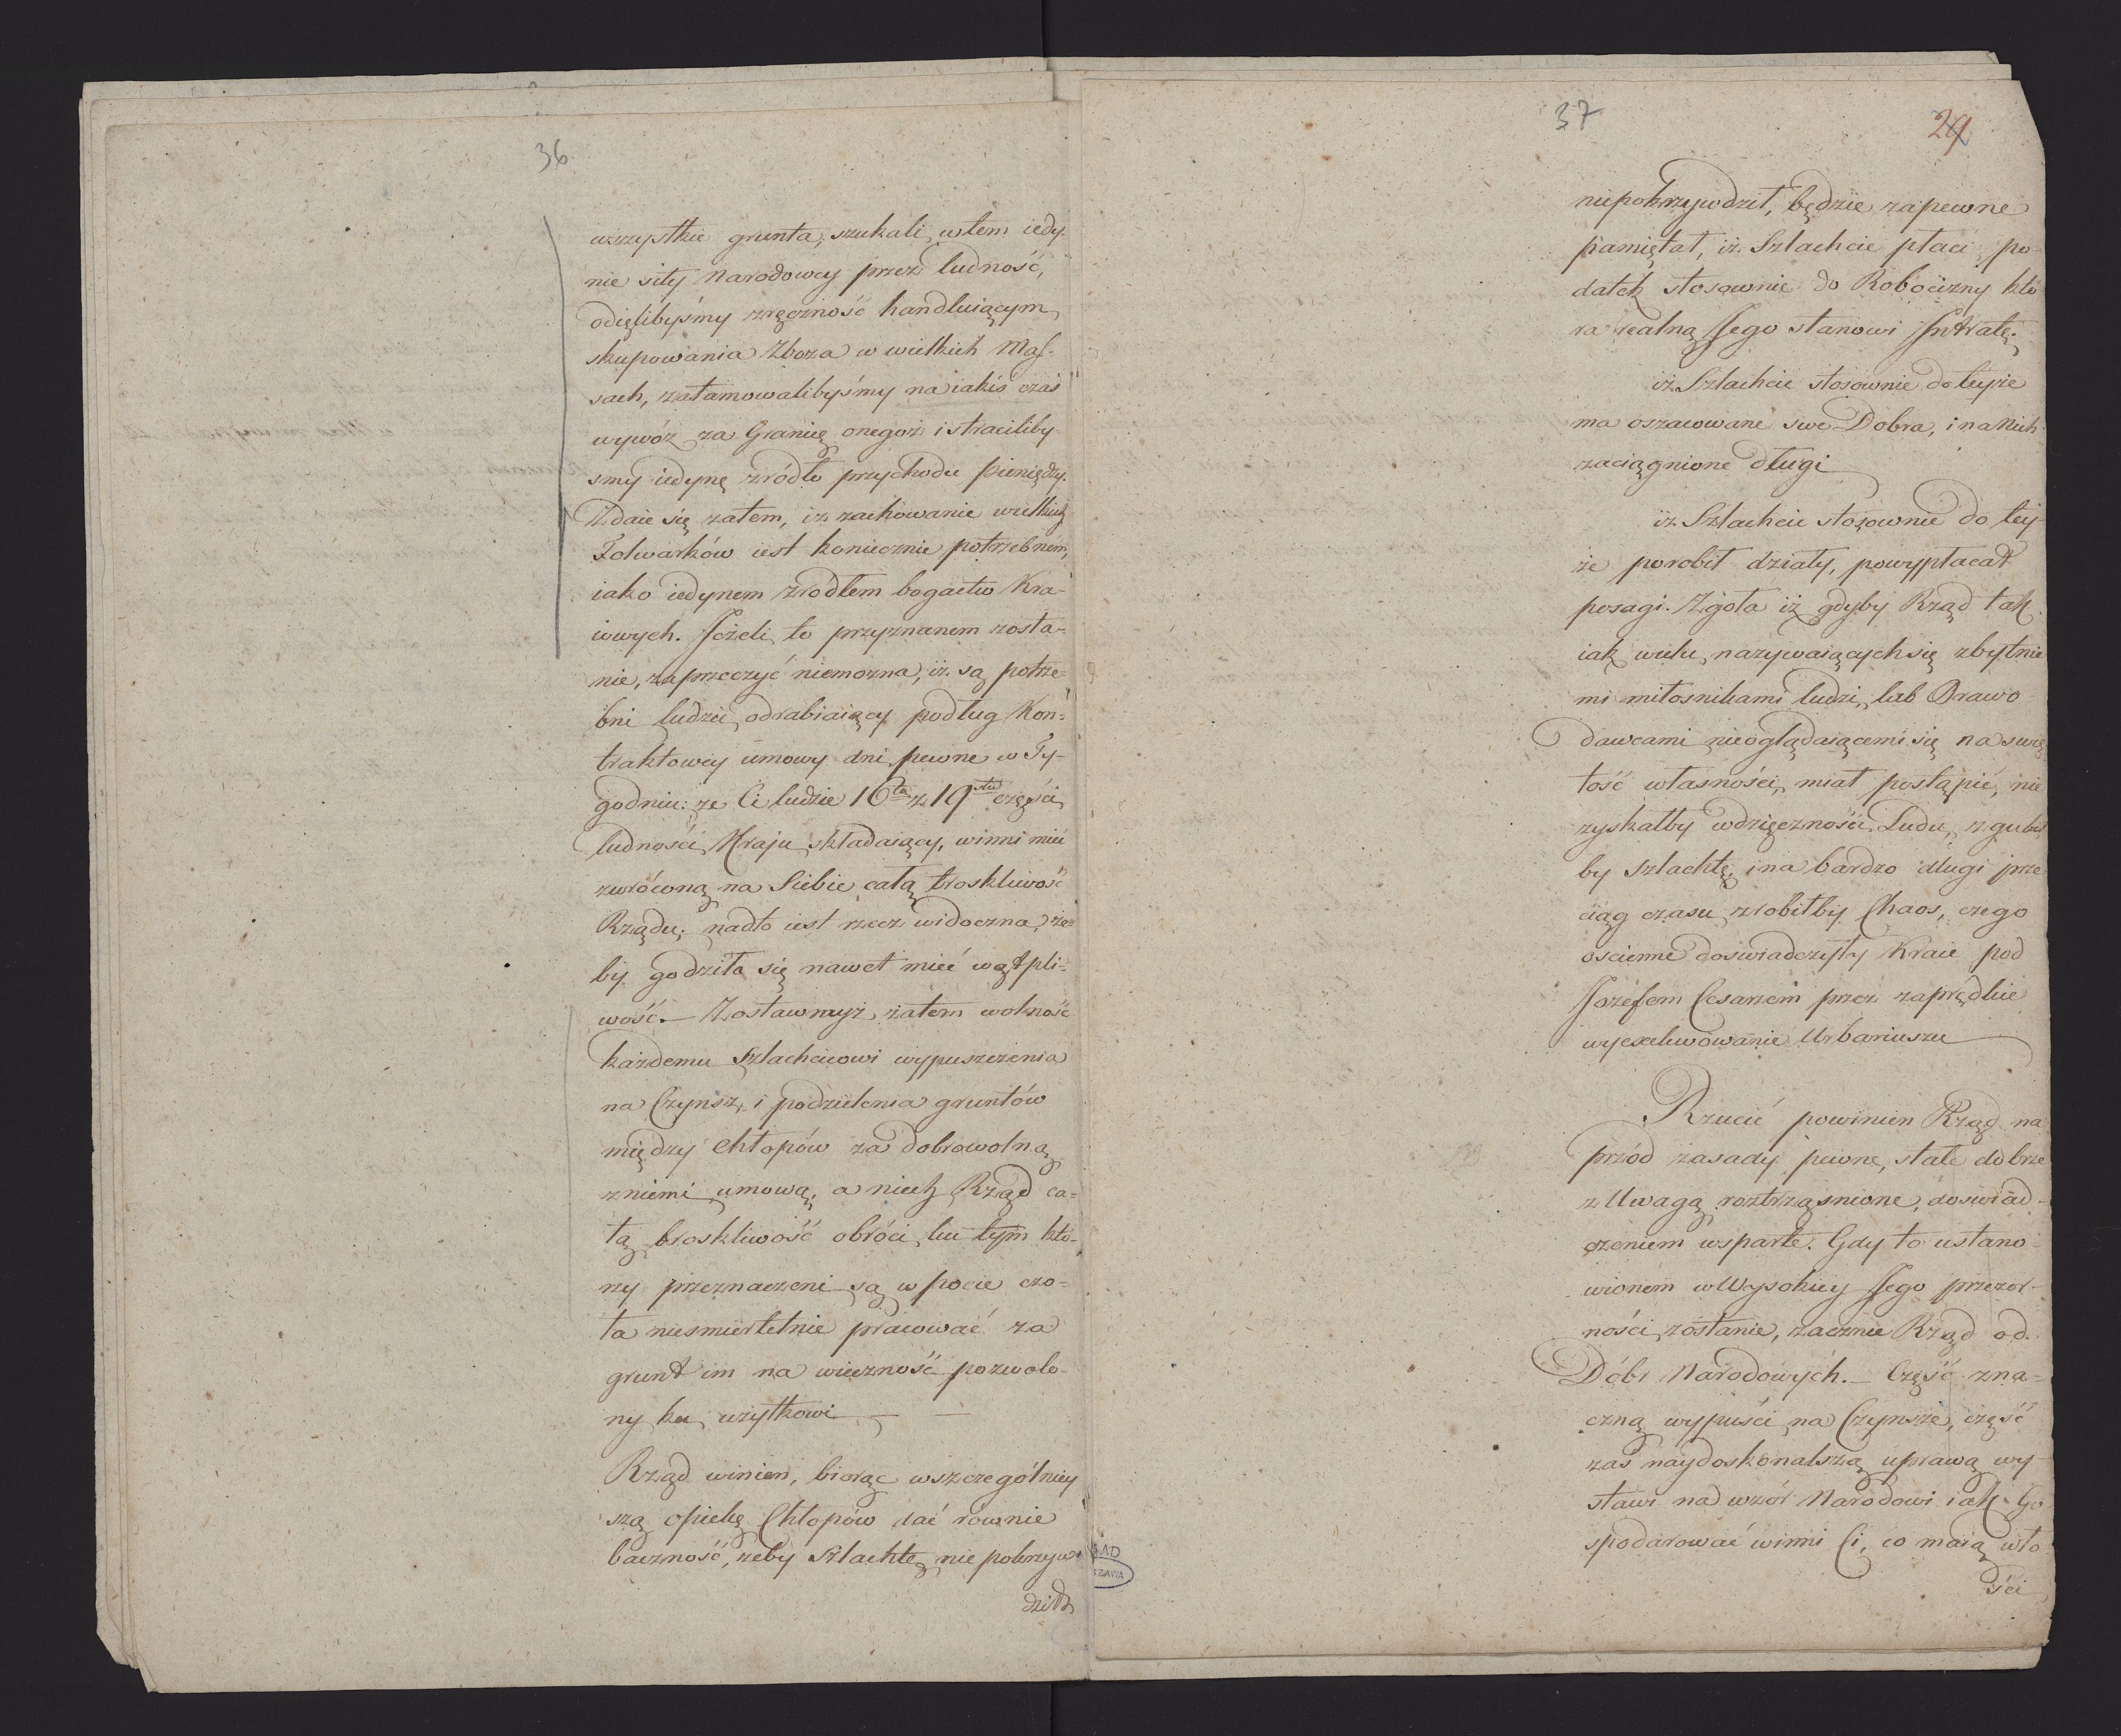 36
wszystkie grunta, szukali wtem iedy-
nie siły Narodowey przez ludność,
odięlibyśmy zręczność handluiącym
skupowania Zboża w wielkich Mas-
sach, zatamowalibyśmy na iakiś czas
wywóz za Granicę onegoż i straciliby
smy iedynę zródło przychodu Pieniędzy.
Zdaie się zatem, iż zachowanie wielkich
Folwarków iest koniecznie potrzebnem,
iako iedynem zrodłem bogactw Kra-
iowych. Jeżeli to przyznanem zosta=
nie, zaprzeczyć niemożna, iż są potrze=
bni ludzie odrabiaiący podług Kon=
traktowey umowy dni pewne w Ty-
godniu: że Ci ludzie 16ta z 19stu części
ludności Kraju składaiący, winni mieć
zwróconą na Siebie całą troskliwość
Rządu; nadto iest rzecz widoczna, że=
by godziło się nawet mieć wątpli=
wość.— Zostawmyż zatem wolność
każdemu Szlachcicowi wypuszczenia
na Czynsz, i podzielenia gruntów
między chłopów za dobrowolną
zniemi umową; a niech Rząd ca=
łą troskliwość obróci ku tym któ-
rzy przeznaczeni są w pocie czo=
ła niesmiertelnie pracować za
grunt im na wieczność pozwolo-
ny ku użytkowi — —
Rząd winien, biorąc wszczególniey
szą opiekę Chłopów dać równie
baczność, żeby Szlachtę nie pokrzyw
dził
37
29
niepokrzywdził, będzie zapewne
pamiętał, iż Szlachcic płaci po-
datek stosownie do Robocizny któ
ra realną Jego stanowi Intratę.
iż Szlachcic stosownie do teyże
ma oszacowane swe Dobra, i na Nich
zaciągnione długi
iż Szlachcic stosownie do tey-
że porobił działy, powypłacał
posagi. Zgoła iż gdyby Rząd tak
iak wielu, nazywaiących się zbytnie
mi miłosnikami ludzi, lub Prawo
dawcami nieoglądaiącemi się na swię
tość własności, miał postąpić, nie
zyskałby wdzięczności Ludu, zgubił
by szlachtę, i na bardzo długi prze
ciąg czasu zrobiłby Chaos, czego
ościenne doswiadczyły Kraie pod
Józefem Cesarzem przez zaprędkie
wyexekwowanie Urbariuszu
Rzucić powinien Rząd na
przód zasady pewne, stałe dobrze
z Uwagą roztrząśnione, doswiad-
czeniem wsparte. Gdy to ustano-
wionem w Wysokiey Jego przezor-
ności zostanie, zacznie Rząd od
Dóbr Narodowych.— Część zna=
czną wypuści na Czynsze, część
zaś naydoskonalszą uprawą wy-
stawi na wzór Narodowi iak Go
spodarować winni Ci, co maią wło
ści
GAD
SZAWA